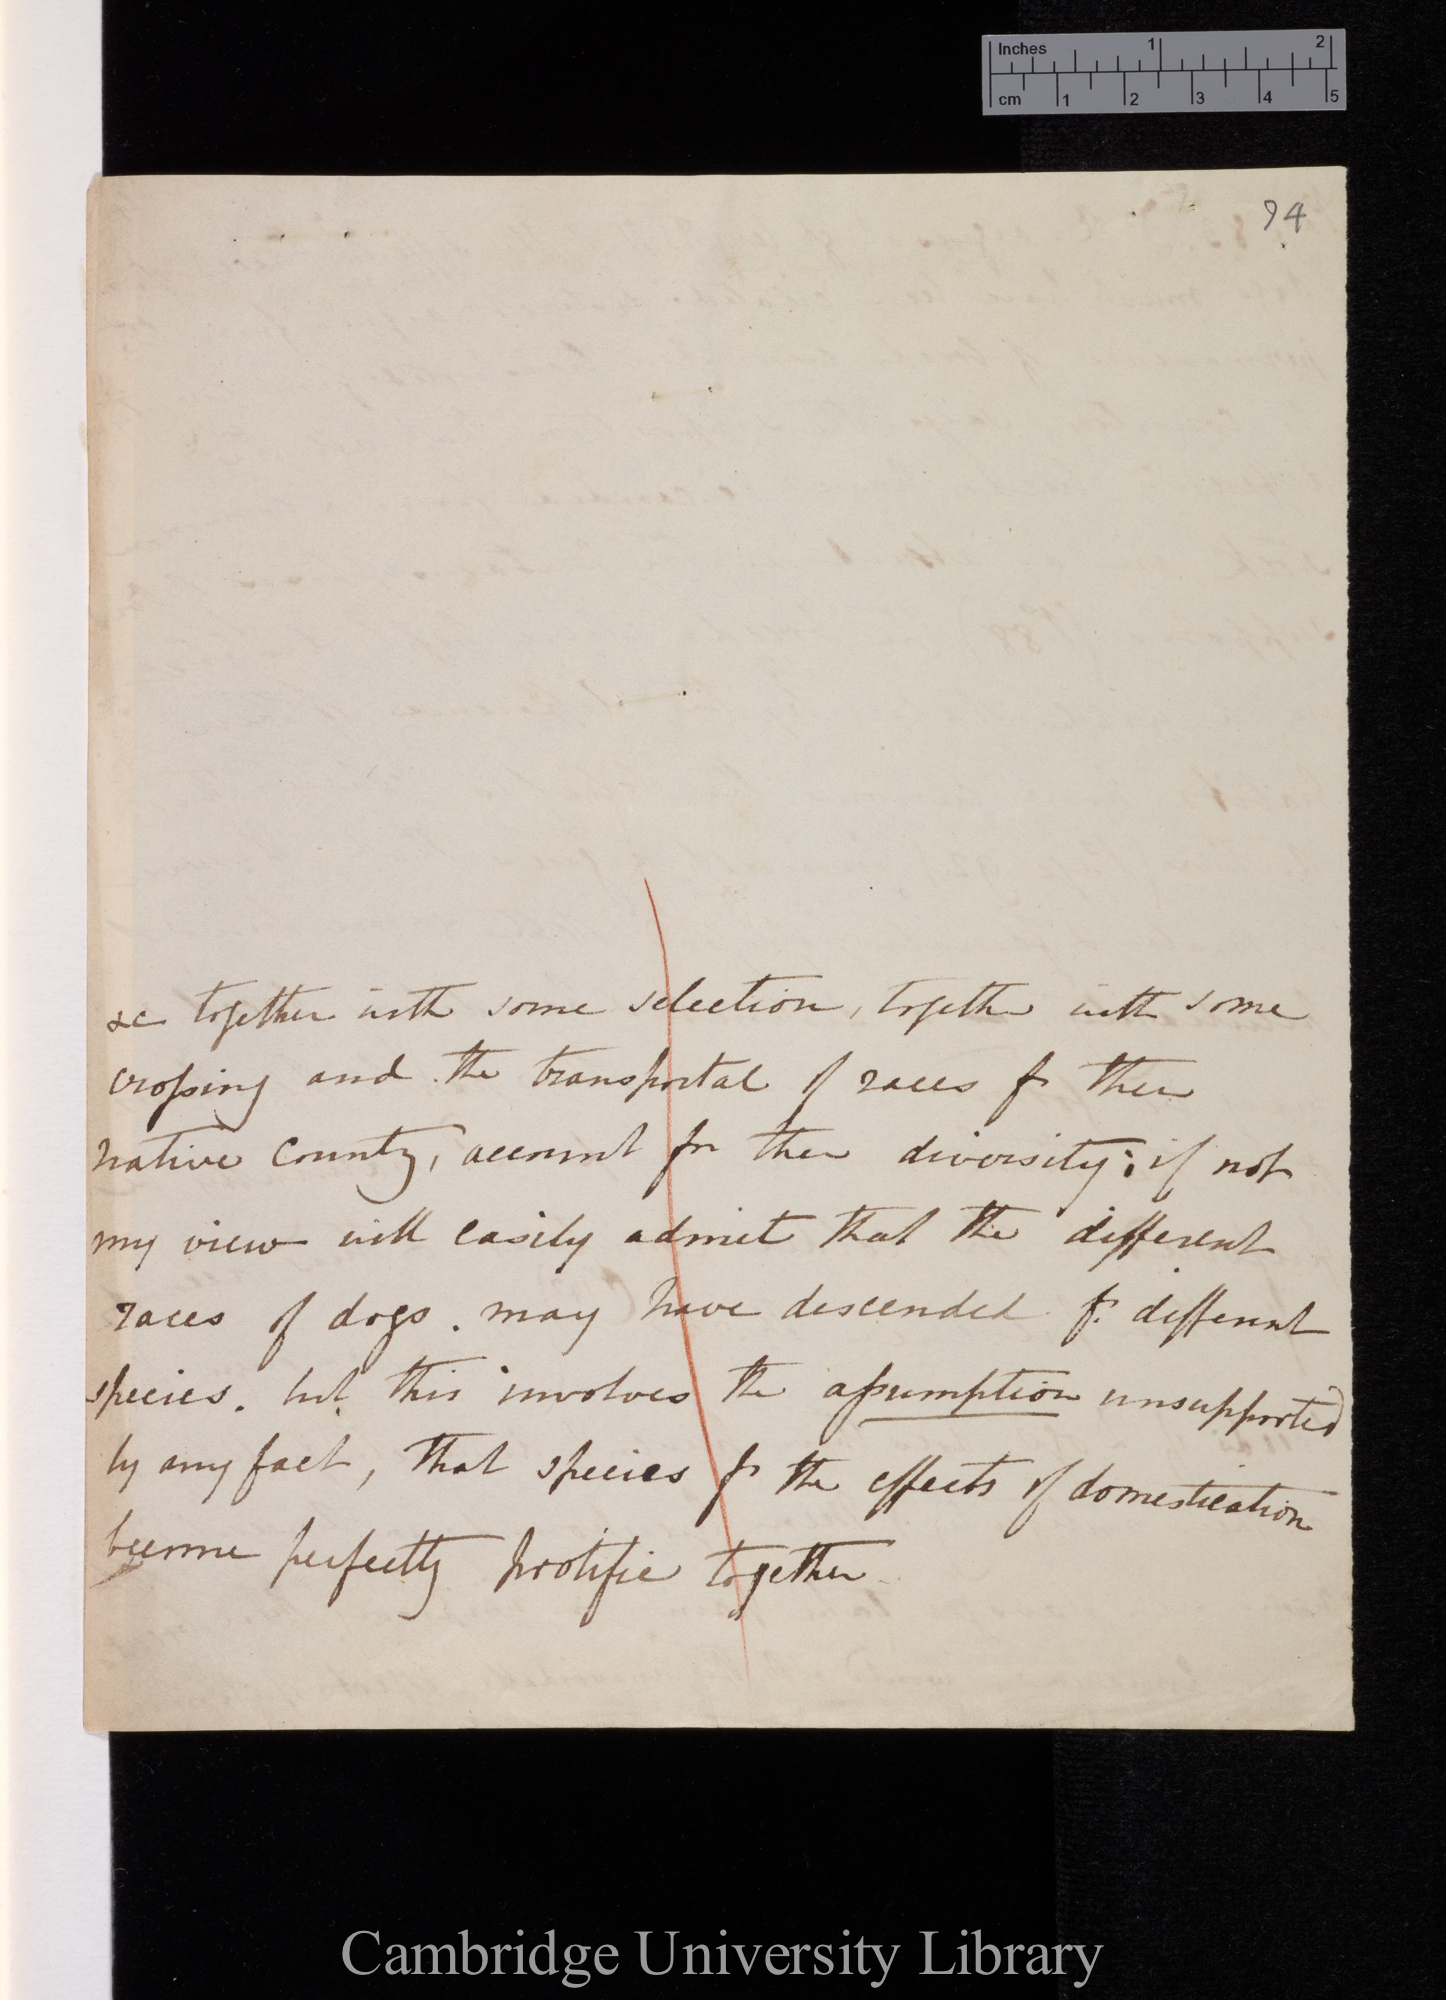 Inches 1 2
cm 1 2 3 4 5
94
&c together with some selection, together with some
crossing and the transportal of races fr their
native country, account for their diversity; if not
my view will easily admit that the different
races of dogs. may have descended fr. different
species. but this involves the assumption unsupported
by any fact, that species fr the effects of domestication
become perfectly prolific together
Cambridge University Library